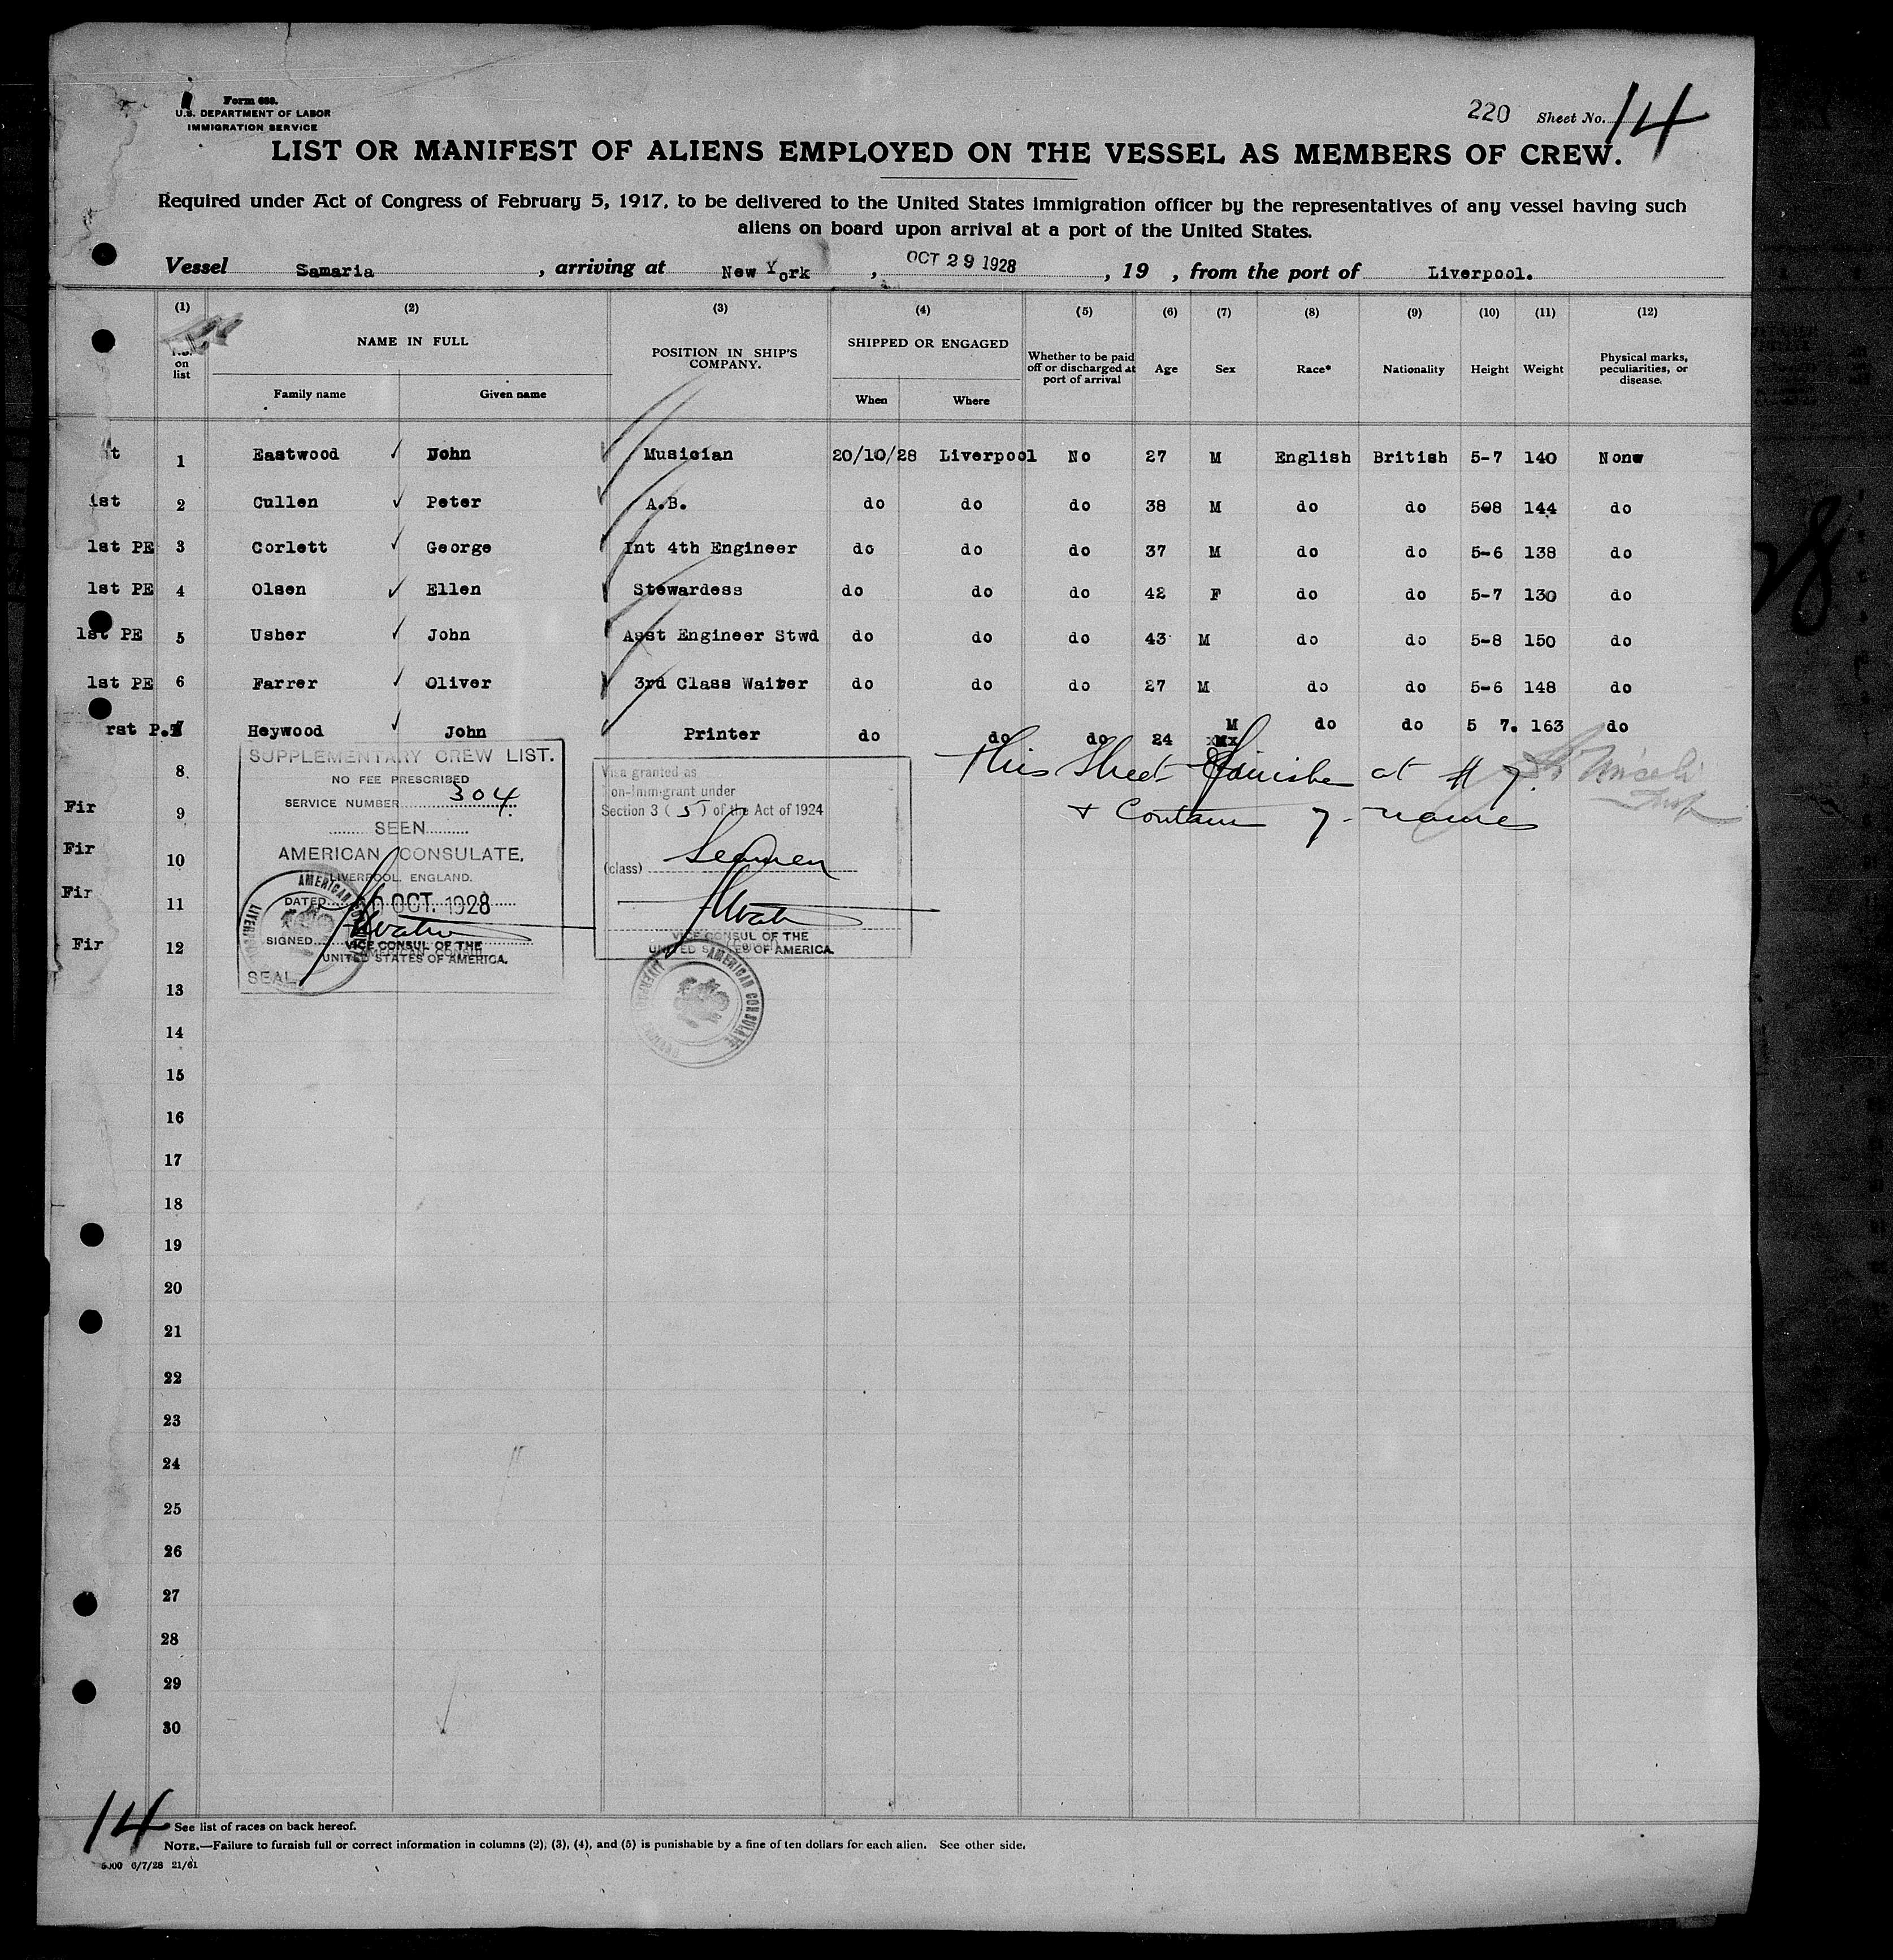 Form 689.
U.S. DEPARTMENT OF LABOR
IMMIGRATION SERVICE
220 Sheet No. 14
LIST OR MANIFEST OF ALIENS EMPLOYED ON THE VESSEL AS MEMBERS OF CREW.
Required under Act of Congress of February 5, 1917, to be delivered to the United States immigration officer by the representatives of any vessel having such
aliens on board upon arrival at a port of the United States.
Vessel Samaria, arriving at New York, OCT 29 1928, 19 , from the port of Liverpool.
(1) (2) (3) (4) (5) (6) (7) (8) (9) (10) (11) (12)
No. on list NAME IN FULL POSITION IN SHIP'S COMPANY. SHIPPED OR ENGAGED Whether to be paid off or discharged at port of arrival Age Sex Race* Nationality Height Weight Physical marks, peculiarities, or disease.
Family name Given name When Where
1 Eastwood ✓ John Musician 20/10/28 Liverpool No 27 M English British 5-7 140 None
1st 2 Cullen ✓ Peter A.B. do do do 38 M do do 508 144 do
1st PE 3 Corlett ✓ George Int 4th Engineer do do do 37 M do do 5-6 138 do
1st PE 4 Olsen ✓ Ellen Stewardess do do do 42 F do do 5-7 130 do
1st PE 5 Usher ✓ John Asst Engineer Stwd do do do 43 M do do 5-8 150 do
1st PE 6 Farrer ✓ Oliver 3rd Class Waiter do do do 27 M do do 5-6 148 do
rst P.E 7 Heywood ✓ John Printer do do do 24 M do do 5 7. 163 do
This Sheet finishes at # 7.
& Contain 7 - names
8
Fir 9
Fir 10
Fir 11
Fir 12
13
14
15
16
17
18
19
20
21
22
23
24
25
26
27
28
29
30
SUPPLEMENTARY CREW LIST.
NO FEE PRESCRIBED
SERVICE NUMBER 304.
SEEN
AMERICAN CONSULATE,
LIVERPOOL, ENGLAND.
DATED OCT. 1928
SIGNED
VICE CONSUL OF THE
UNITED STATES OF AMERICA.
SEAL
AMERICAN CONSULATE
LIVERPOOL
Visa granted as
Non-immigrant under
Section 3 (5) of the Act of 1924
(class) Seamen
VICE CONSUL OF THE
UNITED STATES OF AMERICA.
AMERICAN CONSULATE
LIVERPOOL
28
14
See list of races on back hereof.
NOTE.—Failure to furnish full or correct information in columns (2), (3), (4), and (5) is punishable by a fine of ten dollars for each alien. See other side.
5000 6/7/28 21/61